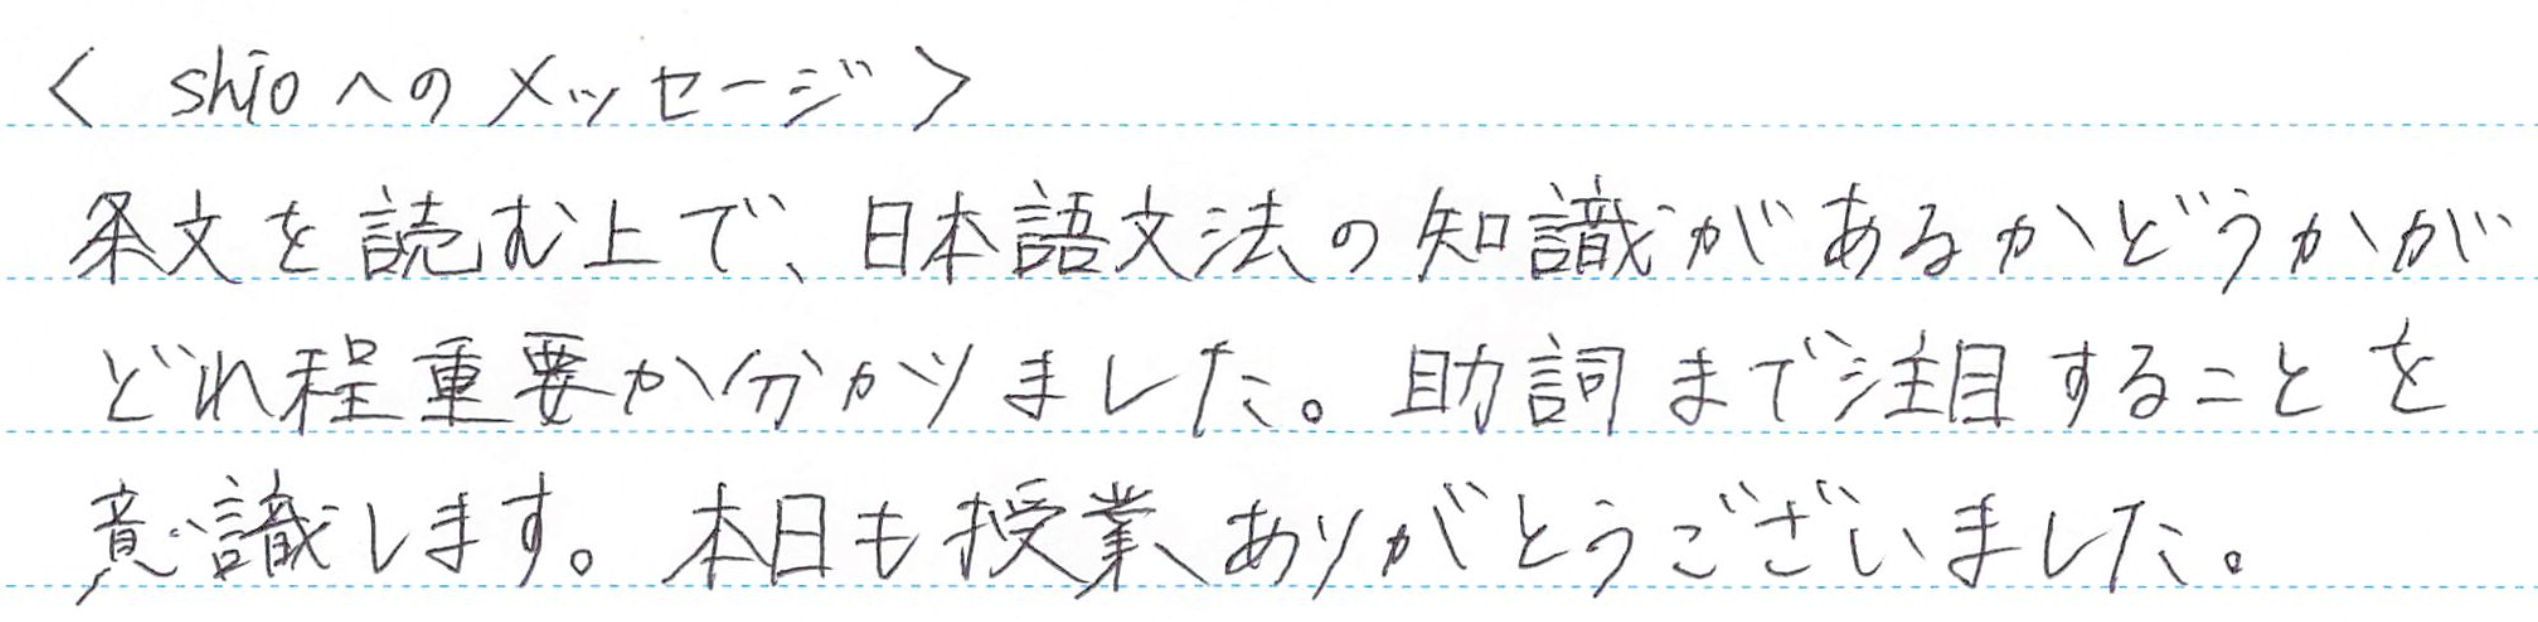 < shioへのメッセージ>
条文を読む上で、日本語文法の知識があるかどうかが
どれ程重要か分かりました。助詞まで注目することを
意識します。本日も授業ありがとうございました。